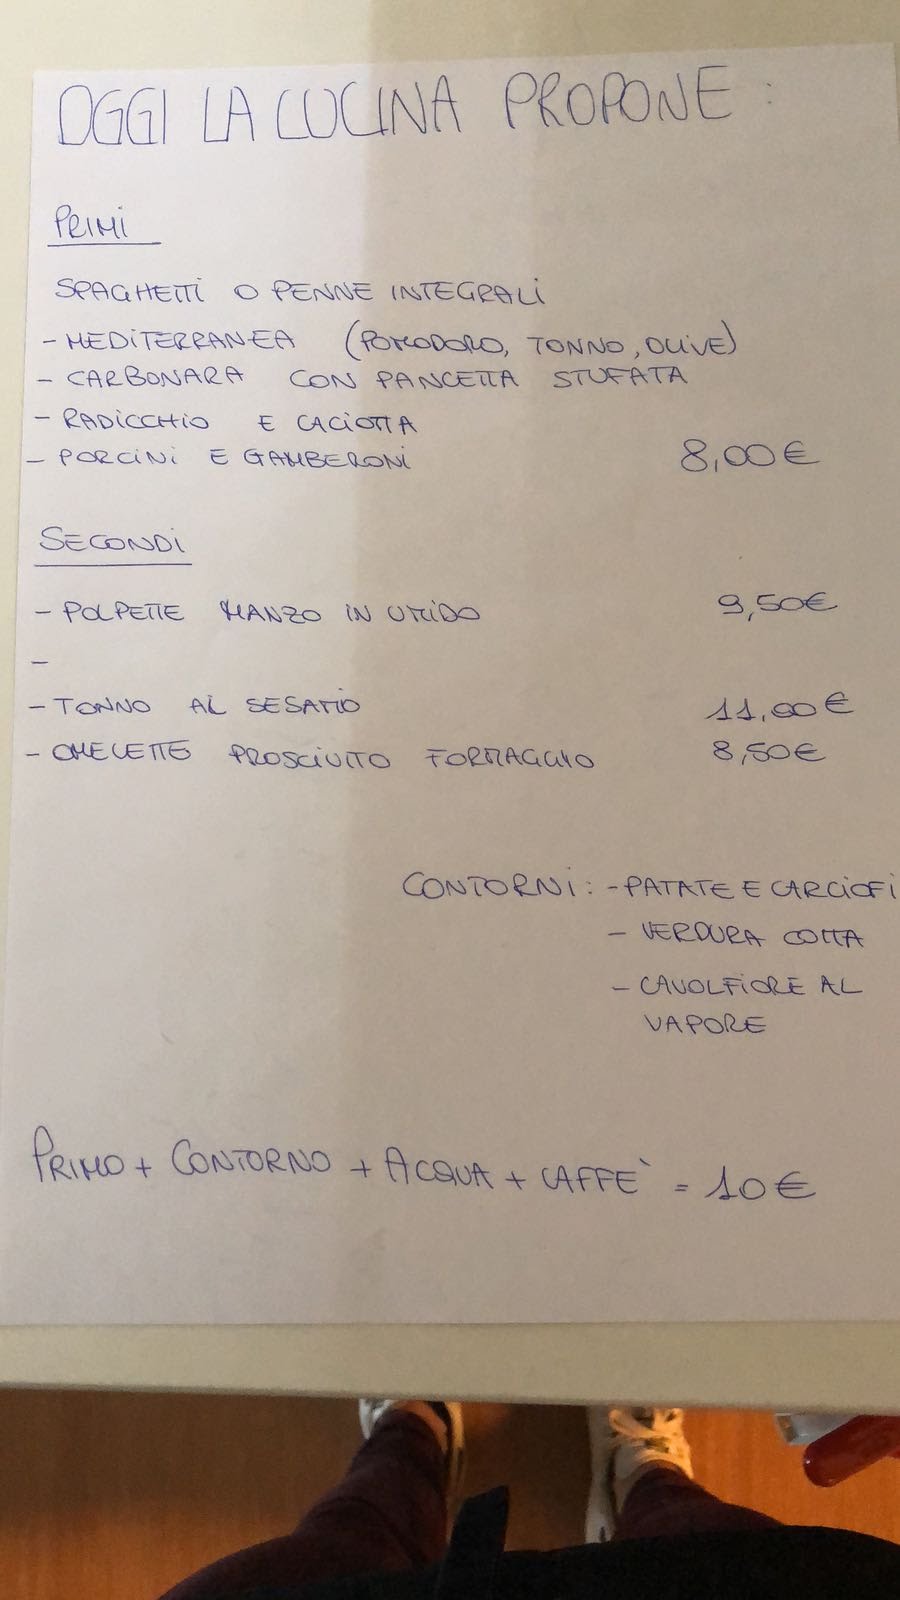 OGGI LA CUCINA PROPONE :
PRIMI
SPAGHETTI O PENNE INTEGRALI
- MEDITERRANEA (POMODORO, TONNO, OLIVE)
- CARBONARA CON PANCETTA STUFATA
- RADICCHIO E CACIOTTA
- PORCINI E GAMBERONI 8,00€
SECONDI
- POLPETTE MANZO IN UMIDO 9,50€
-
- TONNO AL SESAMO 11,00€
- OMELETTE PROSCIUTTO FORMAGGIO 8,50€
CONTORNI: - PATATE E CARCIOFI
- VERDURA COTTA
- CAVOLFIORE AL
VAPORE
PRIMO + CONTORNO + ACQUA + CAFFE` = 10€